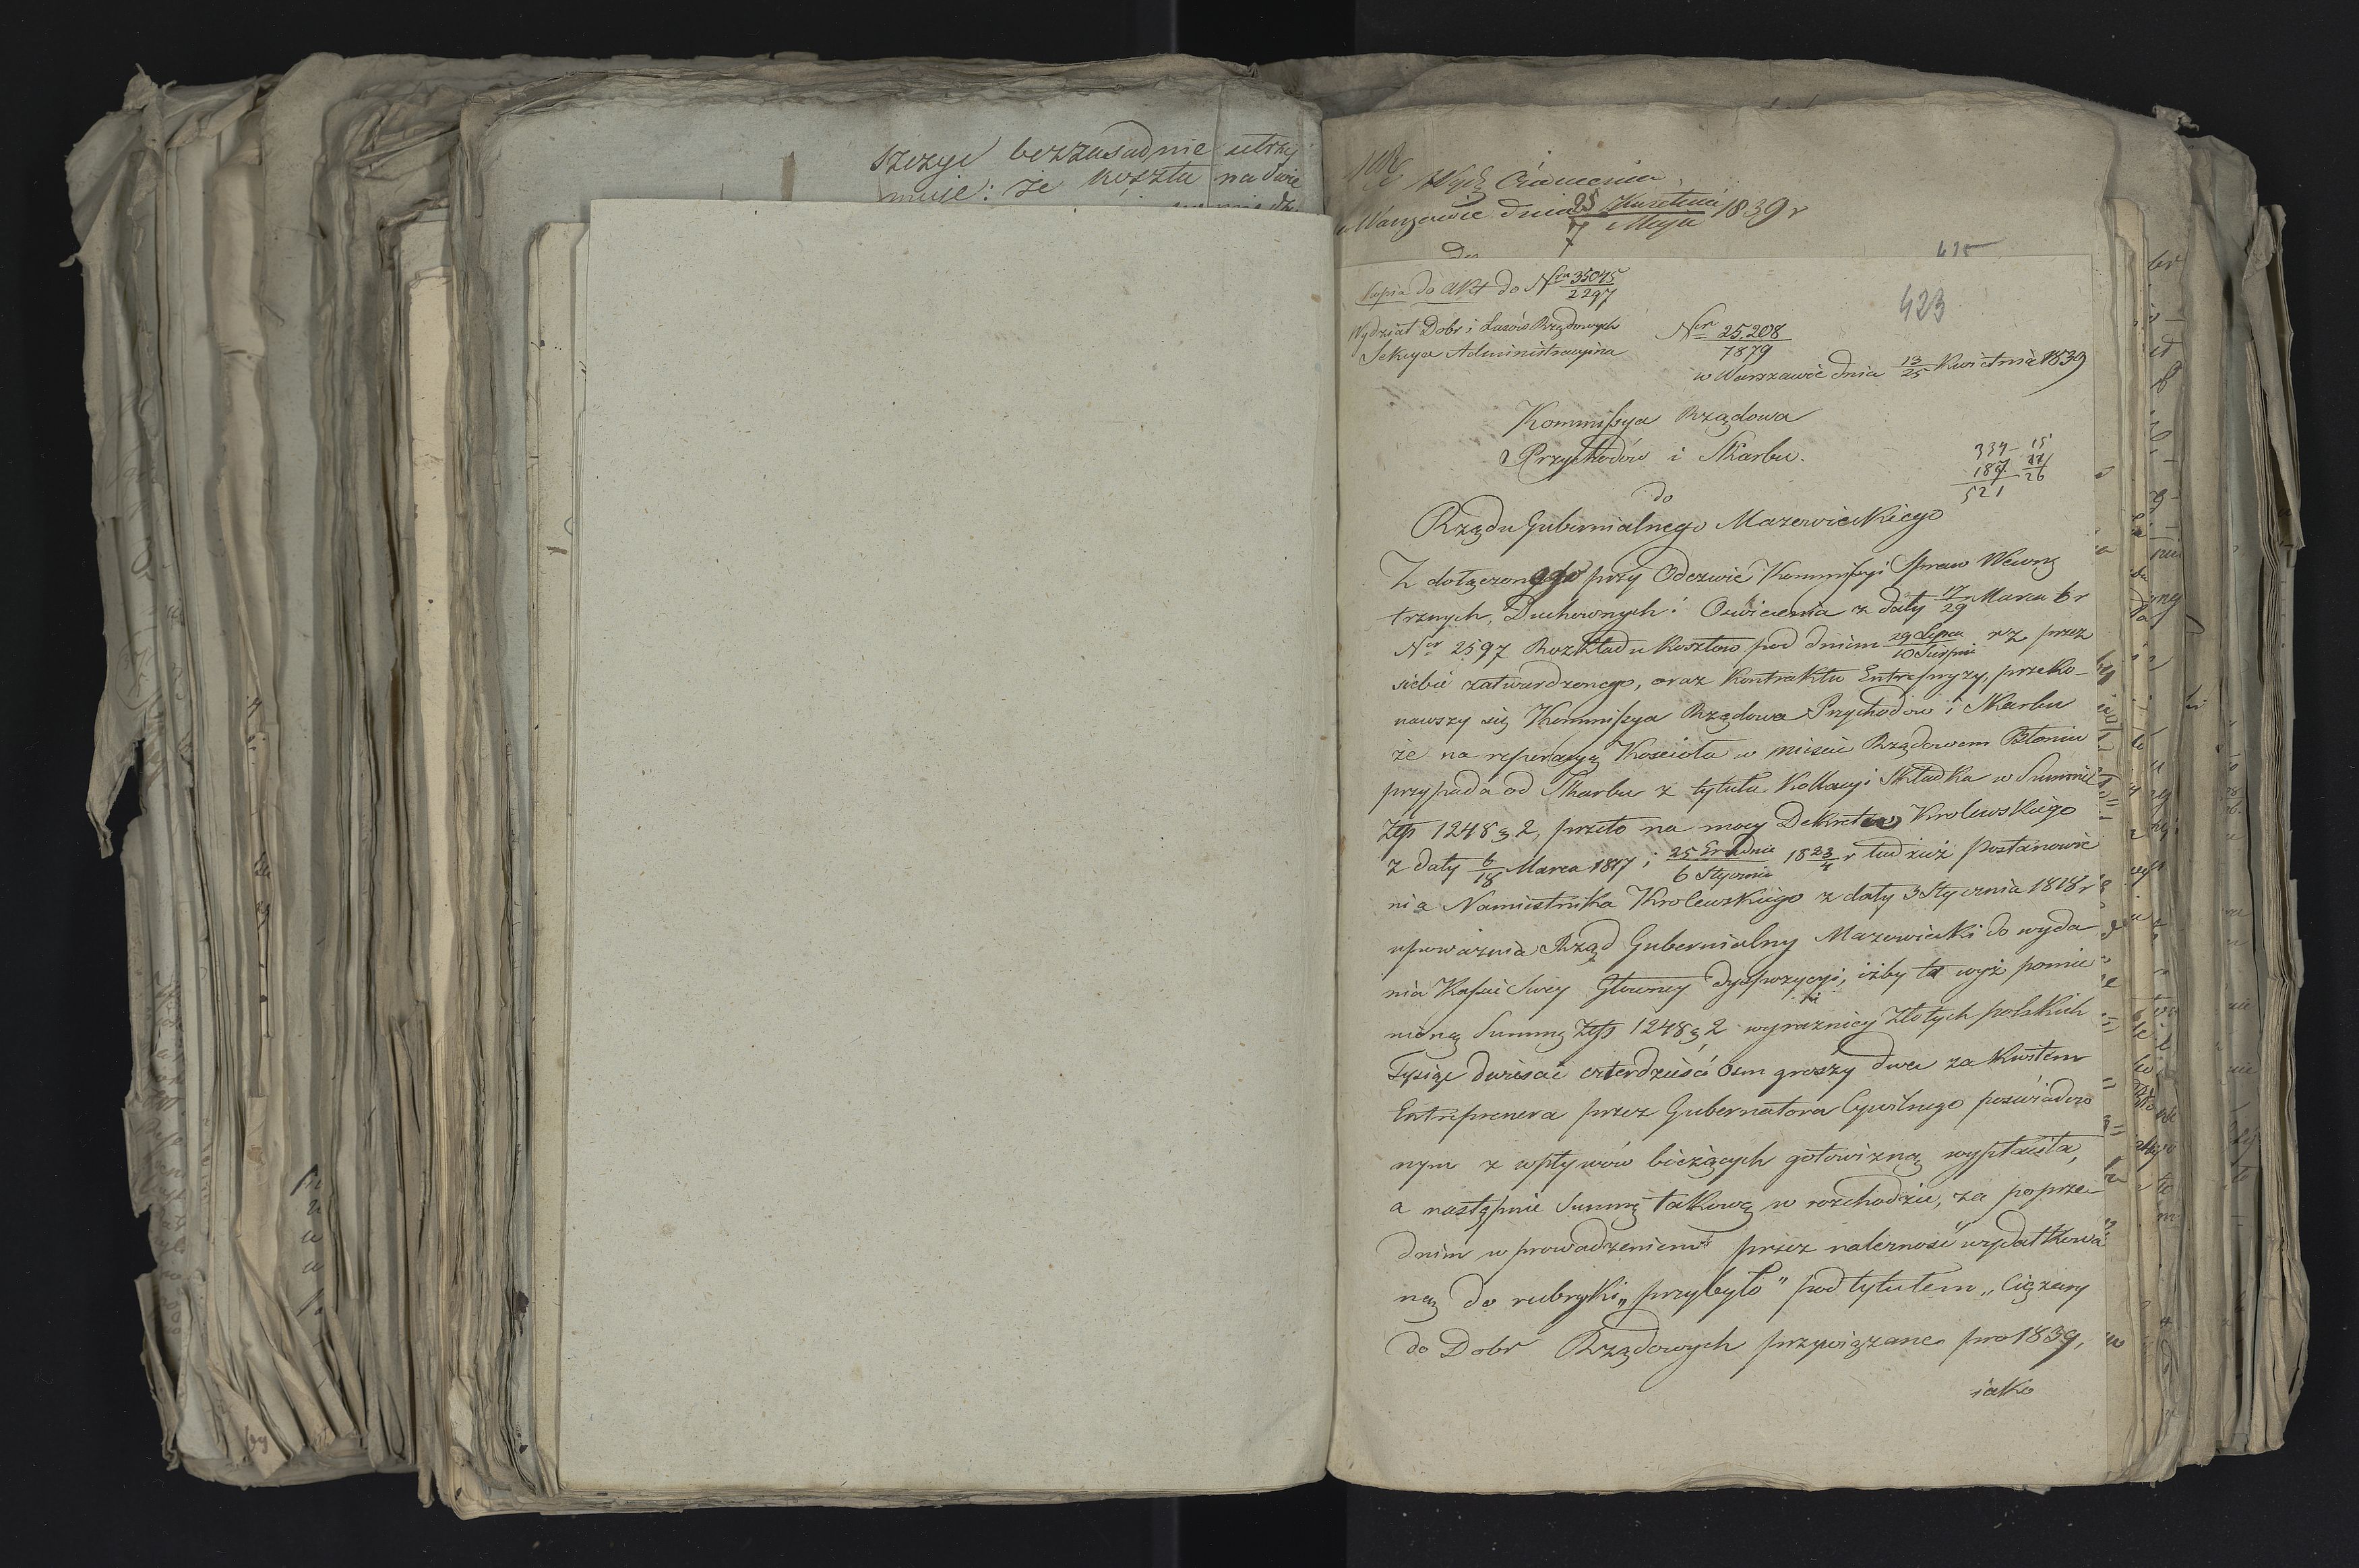 szego bezzasadnie utrzy
muje: że kosztu na dwie
Warszawie dnia 25 Kwietnia / 7 Maja 1839 r
Do
615
Kopia do Akt do Nra 35045 / 2297
423
Wydział Dobr i Lasów Rządowych
Sekcya Administracyina
Ner 25208 / 7879
w Warszawie dnia 13/25 Kwietnia 1839
Kommissya Rządowa
Przychodów i Skarbu.
334 15
187 11
521 26
do
Rządu Gubernialnego Mazowieckiego
Z dołączonego przy Odezwie Kommissyi Spraw Wewnę
trznych, Duchownych i Oświecenia z daty 17/29 Marca b r
Nr 2597 Rozkładu Kosztow pod dniem 29 Lipca / 10 Sierpnia r z przez
siebie zatwierdzonego, oraz Kontraktu Entrepryzy, przeko-
nawszy się Kommissya Rządowa Przychodow i Skarbu
że na reperacyą Kościoła w mieście Rządowem Błoniu
przypada od Skarbu z tytułu Kollacyi Składka w Summie
Złp 1248 g 2, przeto na mocy Dekretow Krolewskiego
z daty 6/18 Marca 1817 i 25 Grudnia / 6 Stycznia 1823/4 r tudzież Postanowie
nia Namiestnika Krolewskiego z daty 3 Stycznia 1818 r
upoważnia Rząd Gubernialny Mazowiecki do wyda
nia Kassie Swey Głowney dyspozycyi, iżby ta wyż pomie
nioną Summę Złp 1248 g 2 wyrazniey Złotych polskich
Tysiąc dwieście czterdzieści Osm groszy dwa za Kwitem
Entreprenera przez Gubernatora Cywilnego poświadczo
nym z wpływów bieżących gotowizną wypłaciła,
a następnie Summę takową w rozchodzie, za poprze-
dnim wprowadzeniem przez należność wydatkowa
ną do rubryki „przybyło" pod tytułem „Ciężary
do Dobr Rządowych przywiązane pro 1839,
iako